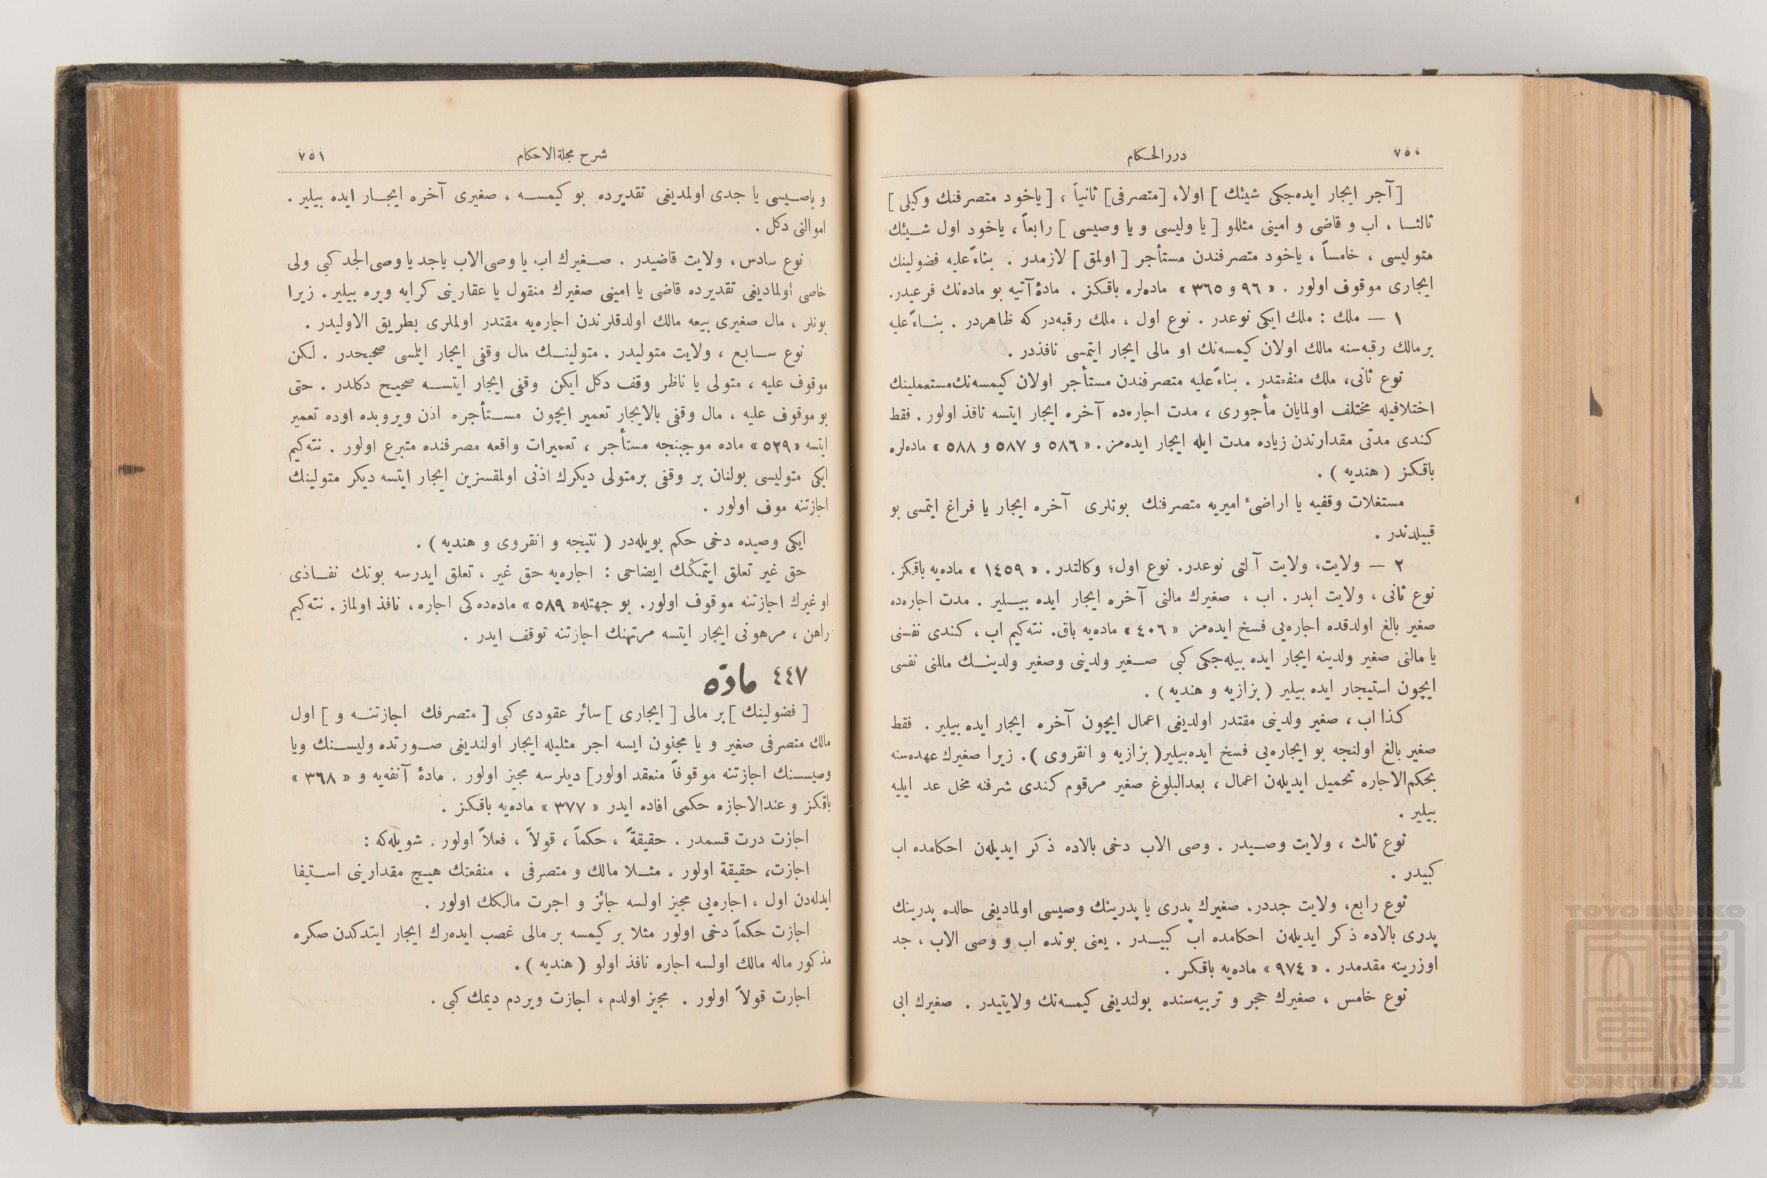 ٧٥٠
دررالحكام
[آجر ايجار ايده‌جكى شيئك ] اولا، [متصرفى] ثانياً ، [ ياخود متصرفنك وكيلى ]
ثالثا ، اب و قاضى و امينى مثللو [ يا وليسى و يا وصيسى ] رابعاً ، ياخود اول شيئك
متوليسى ، خامساً ، ياخود متصرفندن مستأجر [ اولمق ] لازمدر . بناءً عليه فضولينك
ايجارى موقوف اولور . « ٩٦ و ٣٦٥ » ماده‌لره باقكز . مادۀ آتيه بو ماده‌نك فرعيدر.
١ — ملك : ملك ايكى نوعدر . نوع اول ، ملك رقبه‌در كه ظاهردر . بناءً عليه
برمالك رقبه‌سنه مالك اولان كيمسه‌نك او مالى ايجار ايتمسى نافذدر .
نوع ثانى، ملك منفعتدر . بناءً عليه متصرفندن مستأجر اولان كيمسه‌نك مستعملينك
اختلافيله مختلف اولمايان مأجورى ، مدت اجاره‌ده آخره ايجار ايتسه نافذ اولور . فقط
كندى مدتى مقدارندن زياده مدت ايله ايجار ايده‌مز . « ٥٨٦ و ٥٨٧ و ٥٨٨ » ماده‌لره
باقكز ( هنديه ) .
مستغلات وقفيه يا اراضئ اميريه متصرفنك بونلرى آخره ايجار يا فراغ ايتمسى بو
قبيلدندر .
٢ — ولايت، ولايت آلتى نوعدر. نوع اول؛ وكالتدر. « ١٤٥٩ » ماده‌يه باقكز.
نوع ثانى ، ولايت ابدر . اب ، صغيرك مالنى آخره ايجار ايده بيلير . مدت اجاره‌ده
صغير بالغ اولدقده اجاره‌يى فسخ ايده‌مز « ٤٠٦ » ماده‌يه باق. نته‌كيم اب ، كندى نفسنى
يا مالنى صغير ولدينه ايجار ايده بيله‌جكى كبى صغير ولدينى وصغير ولدينك مالنى نفسى
ايچون استيجار ايده بيلير ( بزازيه و هنديه ) .
كذا اب ، صغير ولدينى مقتدر اولديغى اعمال ايچون آخره ايجار ايده بيلير . فقط
صغير بالغ اولنجه بو ايجاره‌يى فسخ ايده‌بيلير( بزازيه و انقروى ). زيرا صغيرك عهده‌سنه
بحكم‌الاجاره تحميل ايديله‌ن اعمال ، بعدالبلوغ صغير مرقوم كندى شرفنه مخل عد ايليه
بيلير .
نوع ثالث ، ولايت وصيدر . وصى الاب دخى بالاده ذكر ايديله‌ن احكامده اب
كبيدر .
نوع رابع، ولايت جددر. صغيرك پدرى يا پدرينك وصيسى اولماديغى حالده پدرينك
پدرى بالاده ذكر ايديله‌ن احكامده اب كبيدر . يعنى بونده اب و وصى الاب ، جد
اوزرينه مقدمدر . « ٩٧٤ » ماده‌يه باقكز .
نوع خامس ، صغيرك حجر و تربيه‌سنده بولنديغى كيمسه‌نك ولايتيدر . صغيرك ابى
شرح مجلةالاحكام
٧٥١
و ياصيسى يا جدى اولمديغى تقديرده بو كيمسه ، صغيرى آخره ايجار ايده بيلير .
اموالنى دكل .
نوع سادس، ولايت قاضيدر . صغيرك اب يا وصى‌الاب ياجد يا وصى‌الجد كبى ولى
خاصى اولماديغى تقديرده قاضى يا امينى صغيرك منقول يا عقارينى كرايه ويره بيلير . زيرا
بونلر ، مال صغيرى بيعه مالك اولدقلرندن اجاره‌يه مقتدر اولملرى بطريق الاوليدر .
نوع سابع ، ولايت متوليدر . متولينك مال وقفنى ايجار ايلمسى صحيحدر . لكن
موقوف عليه ، متولى يا ناظر وقف دكل ايكن وقفى ايجار ايتسه صحيح دكلدر . حتى
بو موقوف عليه ، مال وقفى بالايجار تعمير ايچون مستأجره اذن ويروبده اوده تعمير
ايتسه « ٥٢٩ » ماده موجبنجه مستأجر ، تعميرات واقعه مصرفنده متبرع اولور . نته‌كيم
ايكى متوليسى بولنان بر وقفى برمتولى ديكرك اذنى اولمقسزين ايجار ايتسه ديكر متولينك
اجازتنه موف اولور .
ايكى وصيده دخى حكم بويله‌در ( نتيجه و انقروى و هنديه ) .
حق غير تعلق ايتمكك ايضاحى : اجاره‌يه حق غير ، تعلق ايدرسه بونك نفاذى
او غيرك اجازتنه موقوف اولور. بو جهتله « ٥٨٩ » ماده‌ده‌كى اجاره، نافذ اولماز . نته‌كيم
راهن ، مرهونى ايجار ايتسه مرتهنك اجازتنه توقف ايدر .
٤٤٧ مادّه
[ فضولينك ] بر مالى [ ايجارى ] سائر عقودى كبى [ متصرفك اجازتنه و ] اول
مالك متصرفى صغير و يا مجنون ايسه اجر مثليله ايجار اولنديغى صورتده وليسنك ويا
وصيسنك اجازتنه موقوفاً منعقد اولور] ديلرسه مجيز اولور . مادۀ آنفه‌يه و « ٣٦٨ »
باقكز و عندالاجازه حكمى افاده ايدر « ٣٧٧ » ماده‌يه باقكز .
اجازت درت قسمدر . حقيقةً ، حكماً ، قولاً ، فعلاً اولور . شويله‌كه :
اجازت، حقيقة اولور . مثلا مالك و متصرفى ، منفعتك هيچ مقدارينى استيفا
ايدله‌دن اول ، اجاره‌يى مجيز اولسه جائز و اجرت مالكك اولور .
اجازت حكماً دخى اولور مثلا بر كيمسه بر مالى غصب ايده‌رك ايجار ايتدكدن صكره
مذكور ماله مالك اولسه اجاره نافذ اولو ( هنديه ) .
اجارت قولاً اولور . مجيز اولدم ، اجازت ويردم ديمك كبى .
TOYO BUNKO